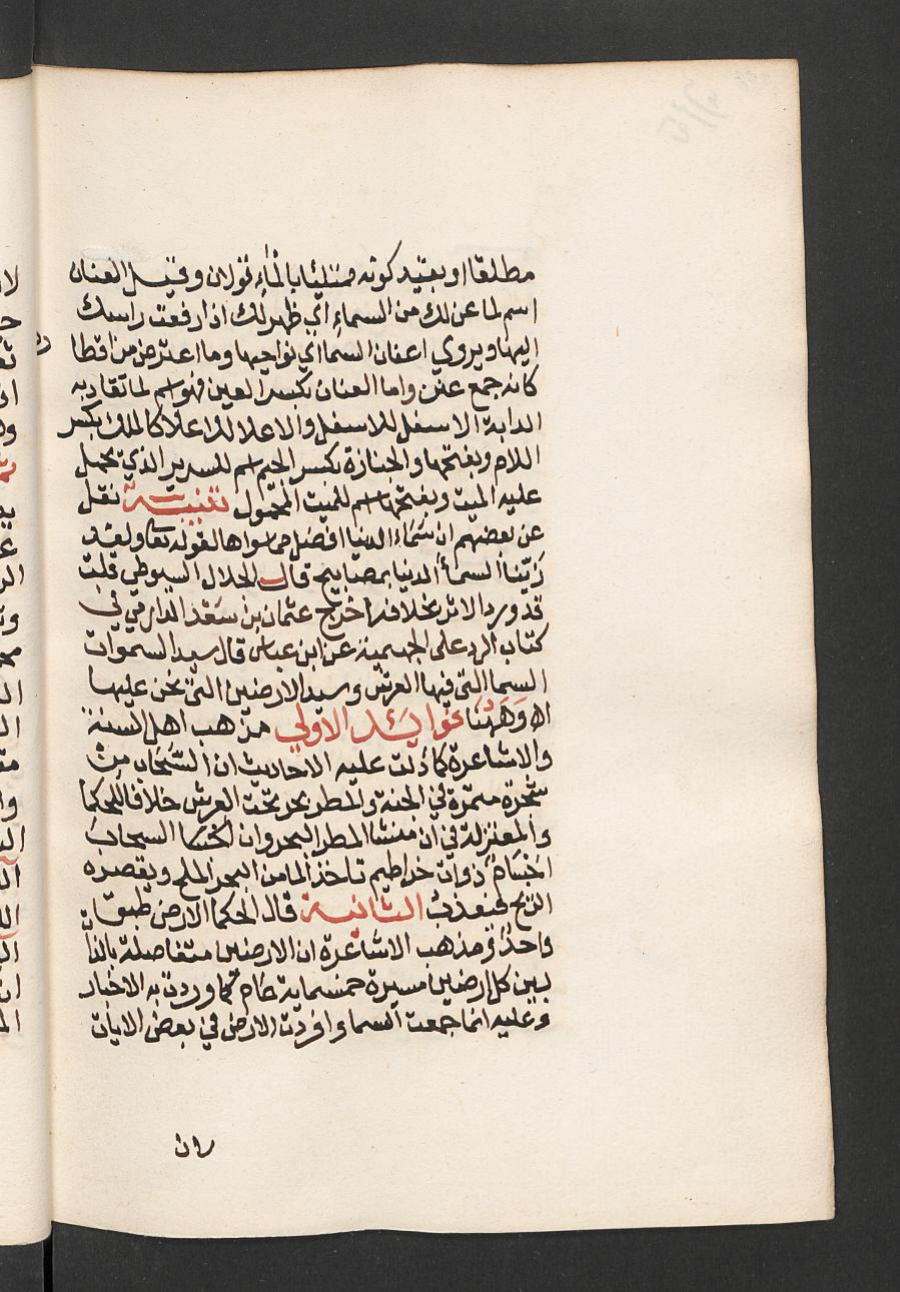 مطلقا او بقيد كونه ممتلئا بالماء قولان وقيل العنان
اسم لما عن لك من السماء اي ظهر لك اذا رفعت راسك
اليها ويروي اعنان السما اي نواحيها وما اعترض من اقطا
كانه جمع عنن واما العنان بكسر العين فهو اسم لما تقاد به
الدابة الاسفل للاسفل والاعلا للاعلا كالملك بكسر
اللام وبفتحها والجنازة بكسر الجيم اسم للسرير الذي يحمل
عليه الميت وبفتحها اسم للميت المحمول تنبيه نقل
عن بعضهم ان سماء الدنيا افضل مما سواها لقوله تعا ولقد
زينا السماء الدنيا بمصابيح قال الجلال السيوطي قلت
قد ورد الاثر بخلافه اخرج عثمان بن سعد الدارمي في
كتاب الرد على الجهمية عن ابن عباس قال سيد السموات
السما التي فيها العرش وسيد الارضين التي نحن عليها
اه وههنا فوائد الاولي مذهب اهل السنة
والاشاعرة كما دلت عليه الاحاديث ان السحاب من
شجرة مثمرة في الجنة والمطر بحر تحت العرش خلافا للحكما
والمعتزلة في ان منشا المطر البحر وان السحاب
اجسام ذوات خراطيم تاخذ الما من البحر الملح ويقصره
الريح فيعذب الثانية قال الحكما الارض طبقات
واحدة ومذهب الاشاعرة ان الارضين متفاصلة بالذا
بين كل ارضين مسيرة خمسماية عام كما وردت به الاخبار
وعليه انما جمعت السما وافردت الارض في بعض الايات
لان